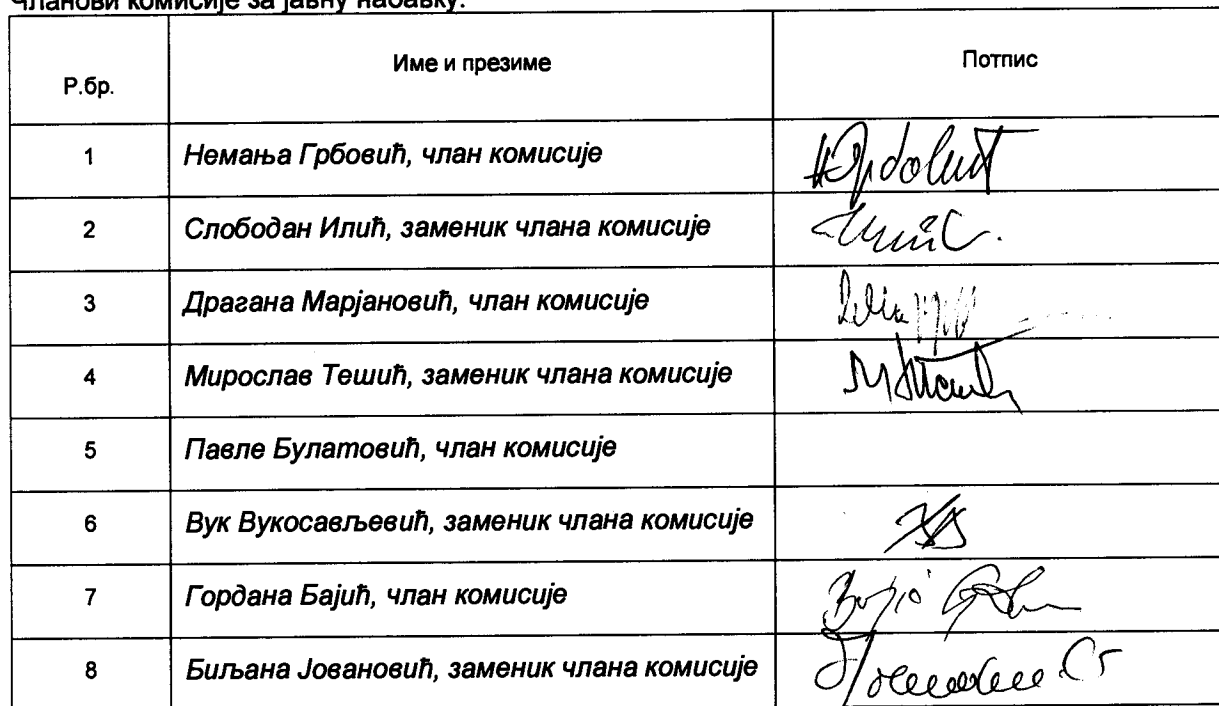 Чланови комисије за јавну набавку:
Р.бр. Име и презиме Потпис
1 Немања Грбовић, члан комисије
2 Слободан Илић, заменик члана комисије
3 Драгана Марјановић, члан комисије
4 Мирослав Тешић, заменик члана комисије
5 Павле Булатовић, члан комисије
6 Вук Вукосављевић, заменик члана комисије
7 Гордана Бајић, члан комисије
8 Биљана Јовановић, заменик члана комисије